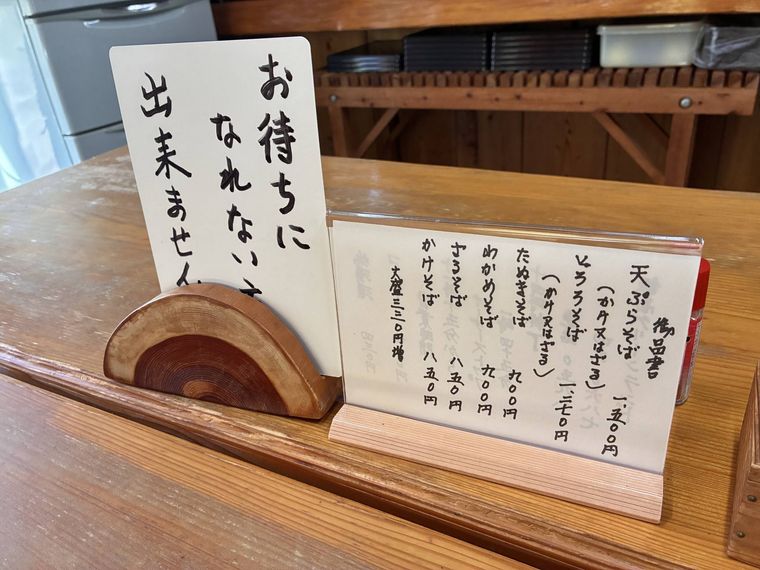 お待ちに
なれない方
出来ません
御品書
天ぷらそば
(かけ又はざる) 一、五〇〇円
とろろそば
(かけ又はざる) 一、二七〇円
たぬきそば 九〇〇円
わかめそば 九〇〇円
ざるそば 八五〇円
かけそば 八五〇円
大盛三三〇円増